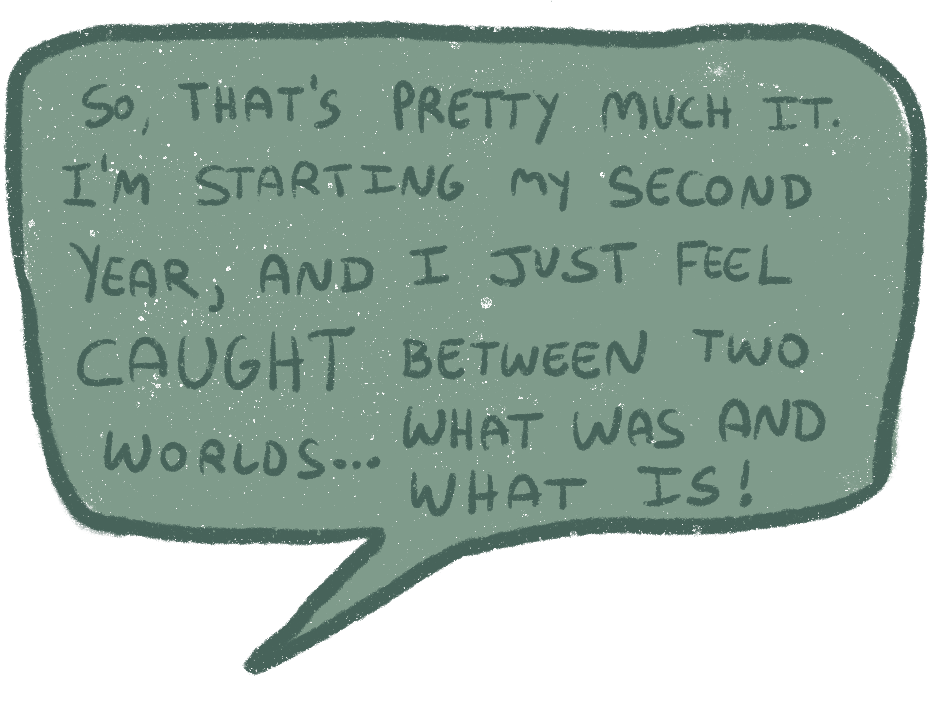 SO, THAT'S PRETTY MUCH IT.
I'M STARTING MY SECOND
YEAR, AND I JUST FEEL
CAUGHT BETWEEN TWO
WORLDS... WHAT WAS AND
WHAT IS!